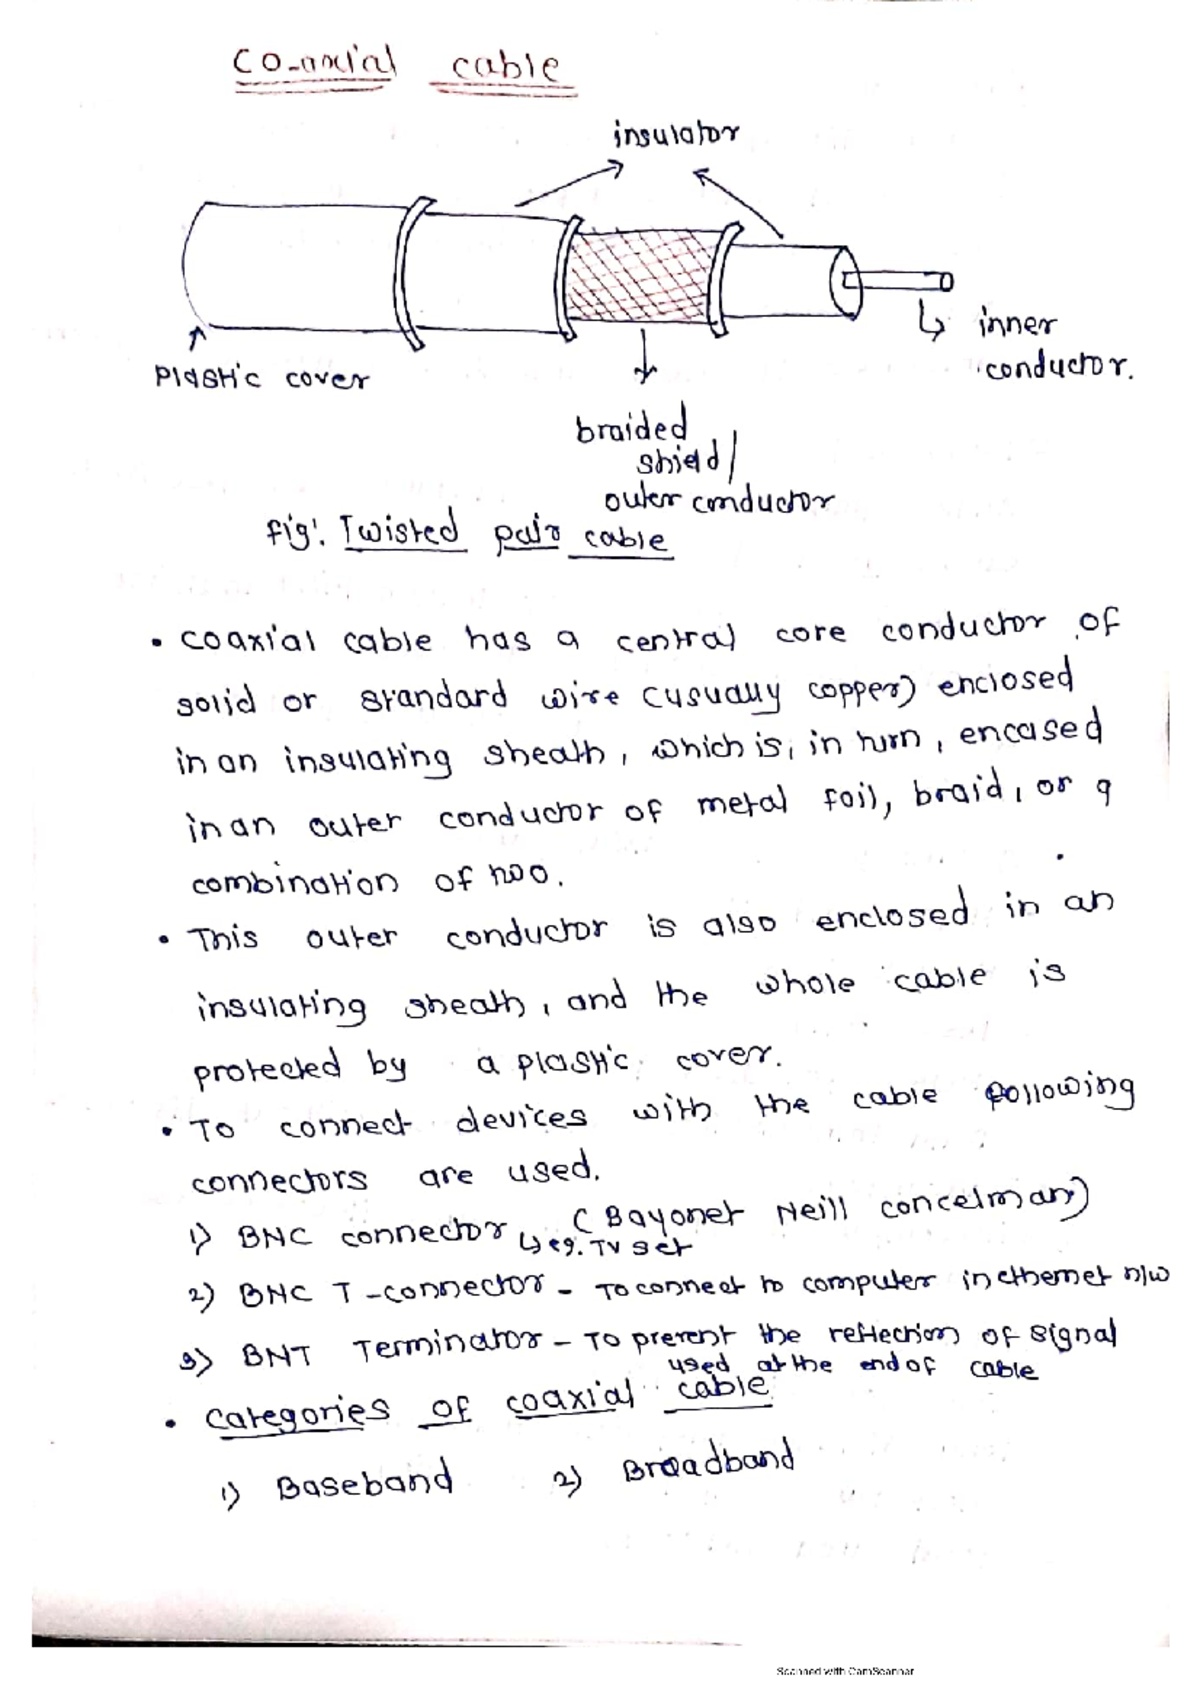 Co-axial cable
insulator
inner
conductor.
Plastic cover
braided
shield/
outer conductor
fig: Twisted pair cable
• Coaxial cable has a central core conductor of
solid or standard wire (usually copper) enclosed
in an insulating sheath, which is, in turn, encased
in an outer conductor of metal foil, braid, or a
combination of two.
• This outer conductor is also enclosed in an
insulating sheath, and the whole cable is
protected by a plastic cover.
• To connect devices with the cable following
connectors are used.
1) BNC connector (Bayonet Neill concelman)
↳ eg. TV set
2) BNC T-connector - To connect to computer in ethernet n/w
3) BNT Terminator - To prevent the reflection of signal
used at the end of cable
• Categories of coaxial cable
1) Baseband 2) Broadband
Scanned with CamScanner